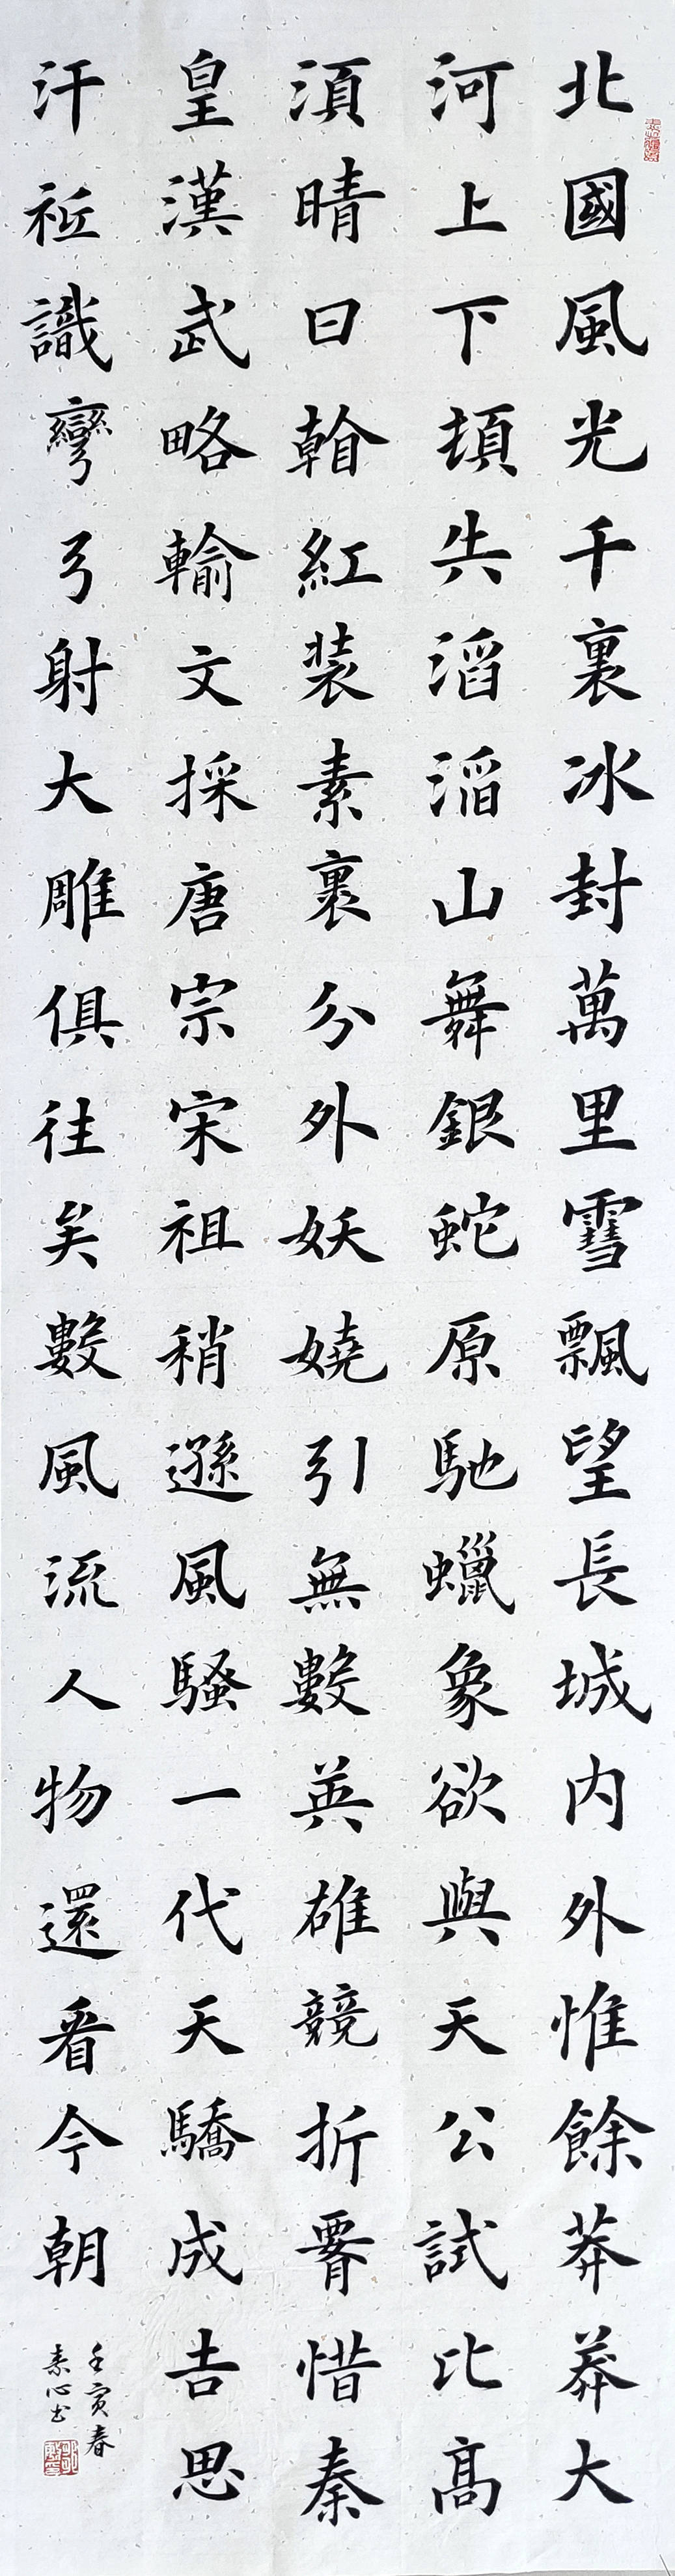 北國風光千裏冰封萬里雪飄望長城內外惟餘莽莽大
河上下頓失滔滔山舞銀蛇原馳蠟象欲與天公試比高
須晴日看紅裝素裹分外妖嬈引無數英雄競折腰惜秦
皇漢武略輸文採唐宗宋祖稍遜風騷一代天驕成吉思
汗衹識彎弓射大雕俱往矣數風流人物還看今朝
壬寅春
素心书